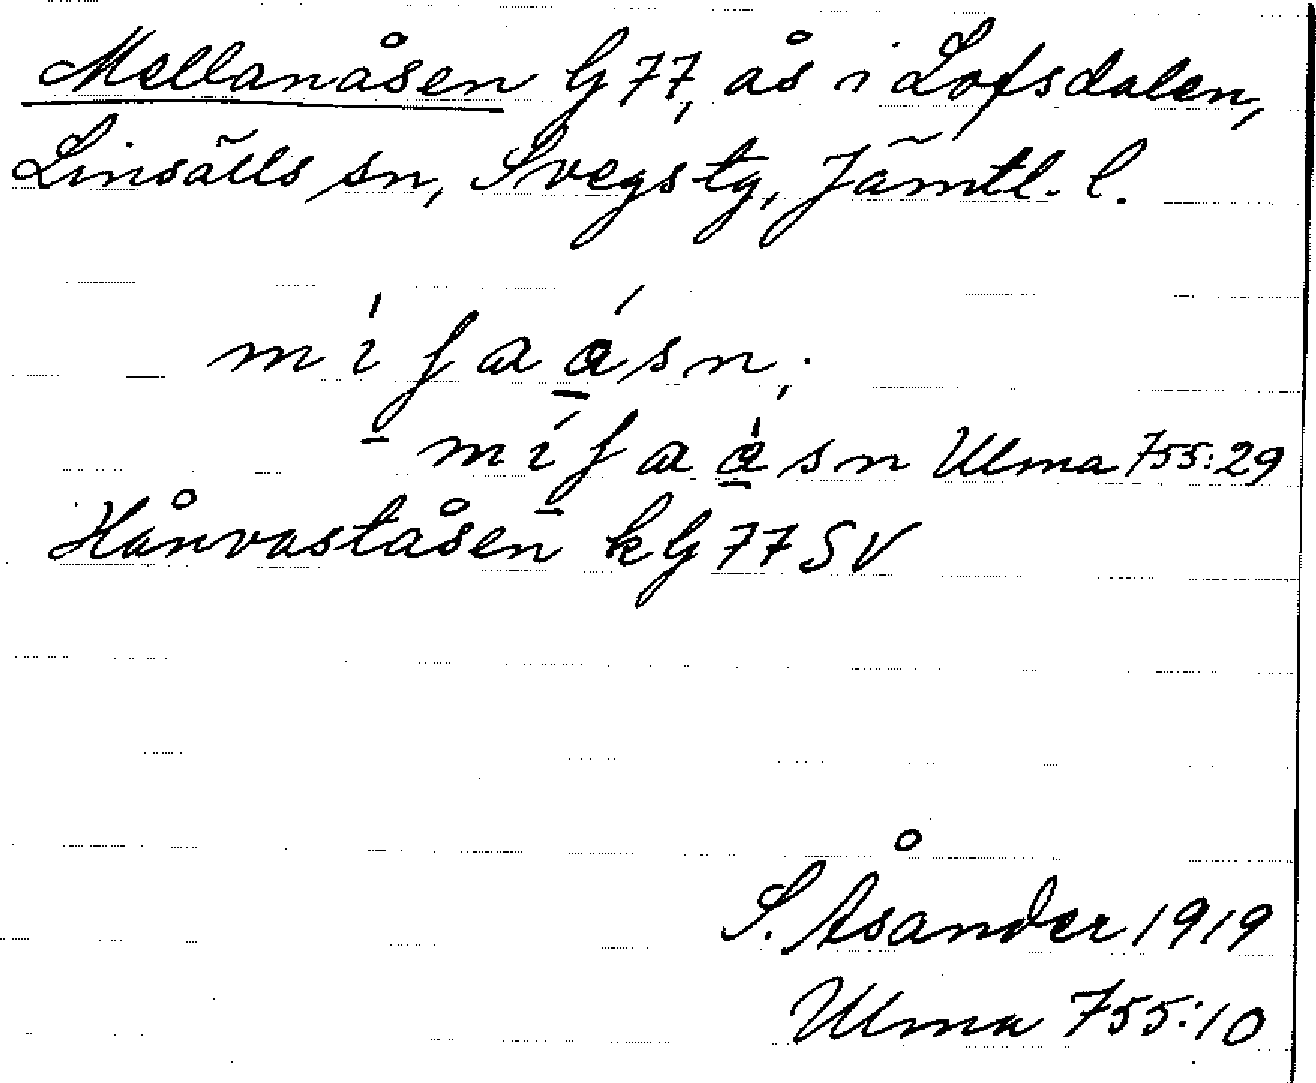 Mellanåsen G 77, ås i Lofsdalen,
Linsälls sn, Svegs tg, Jämtl. l.
míʃaásn,.
míʃaásn Ulma 755:29
Hånvaståsen k G 77 SV
S. Åsander 1919
Ulma 755:10